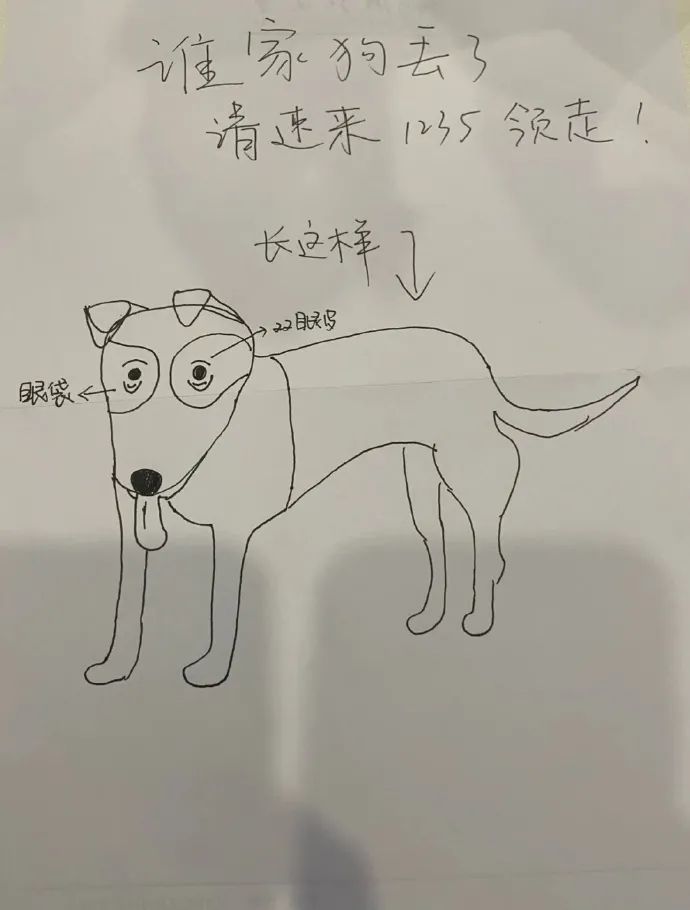 谁家狗丢了
请速来1235领走!
长这样
22眼皮
眼袋